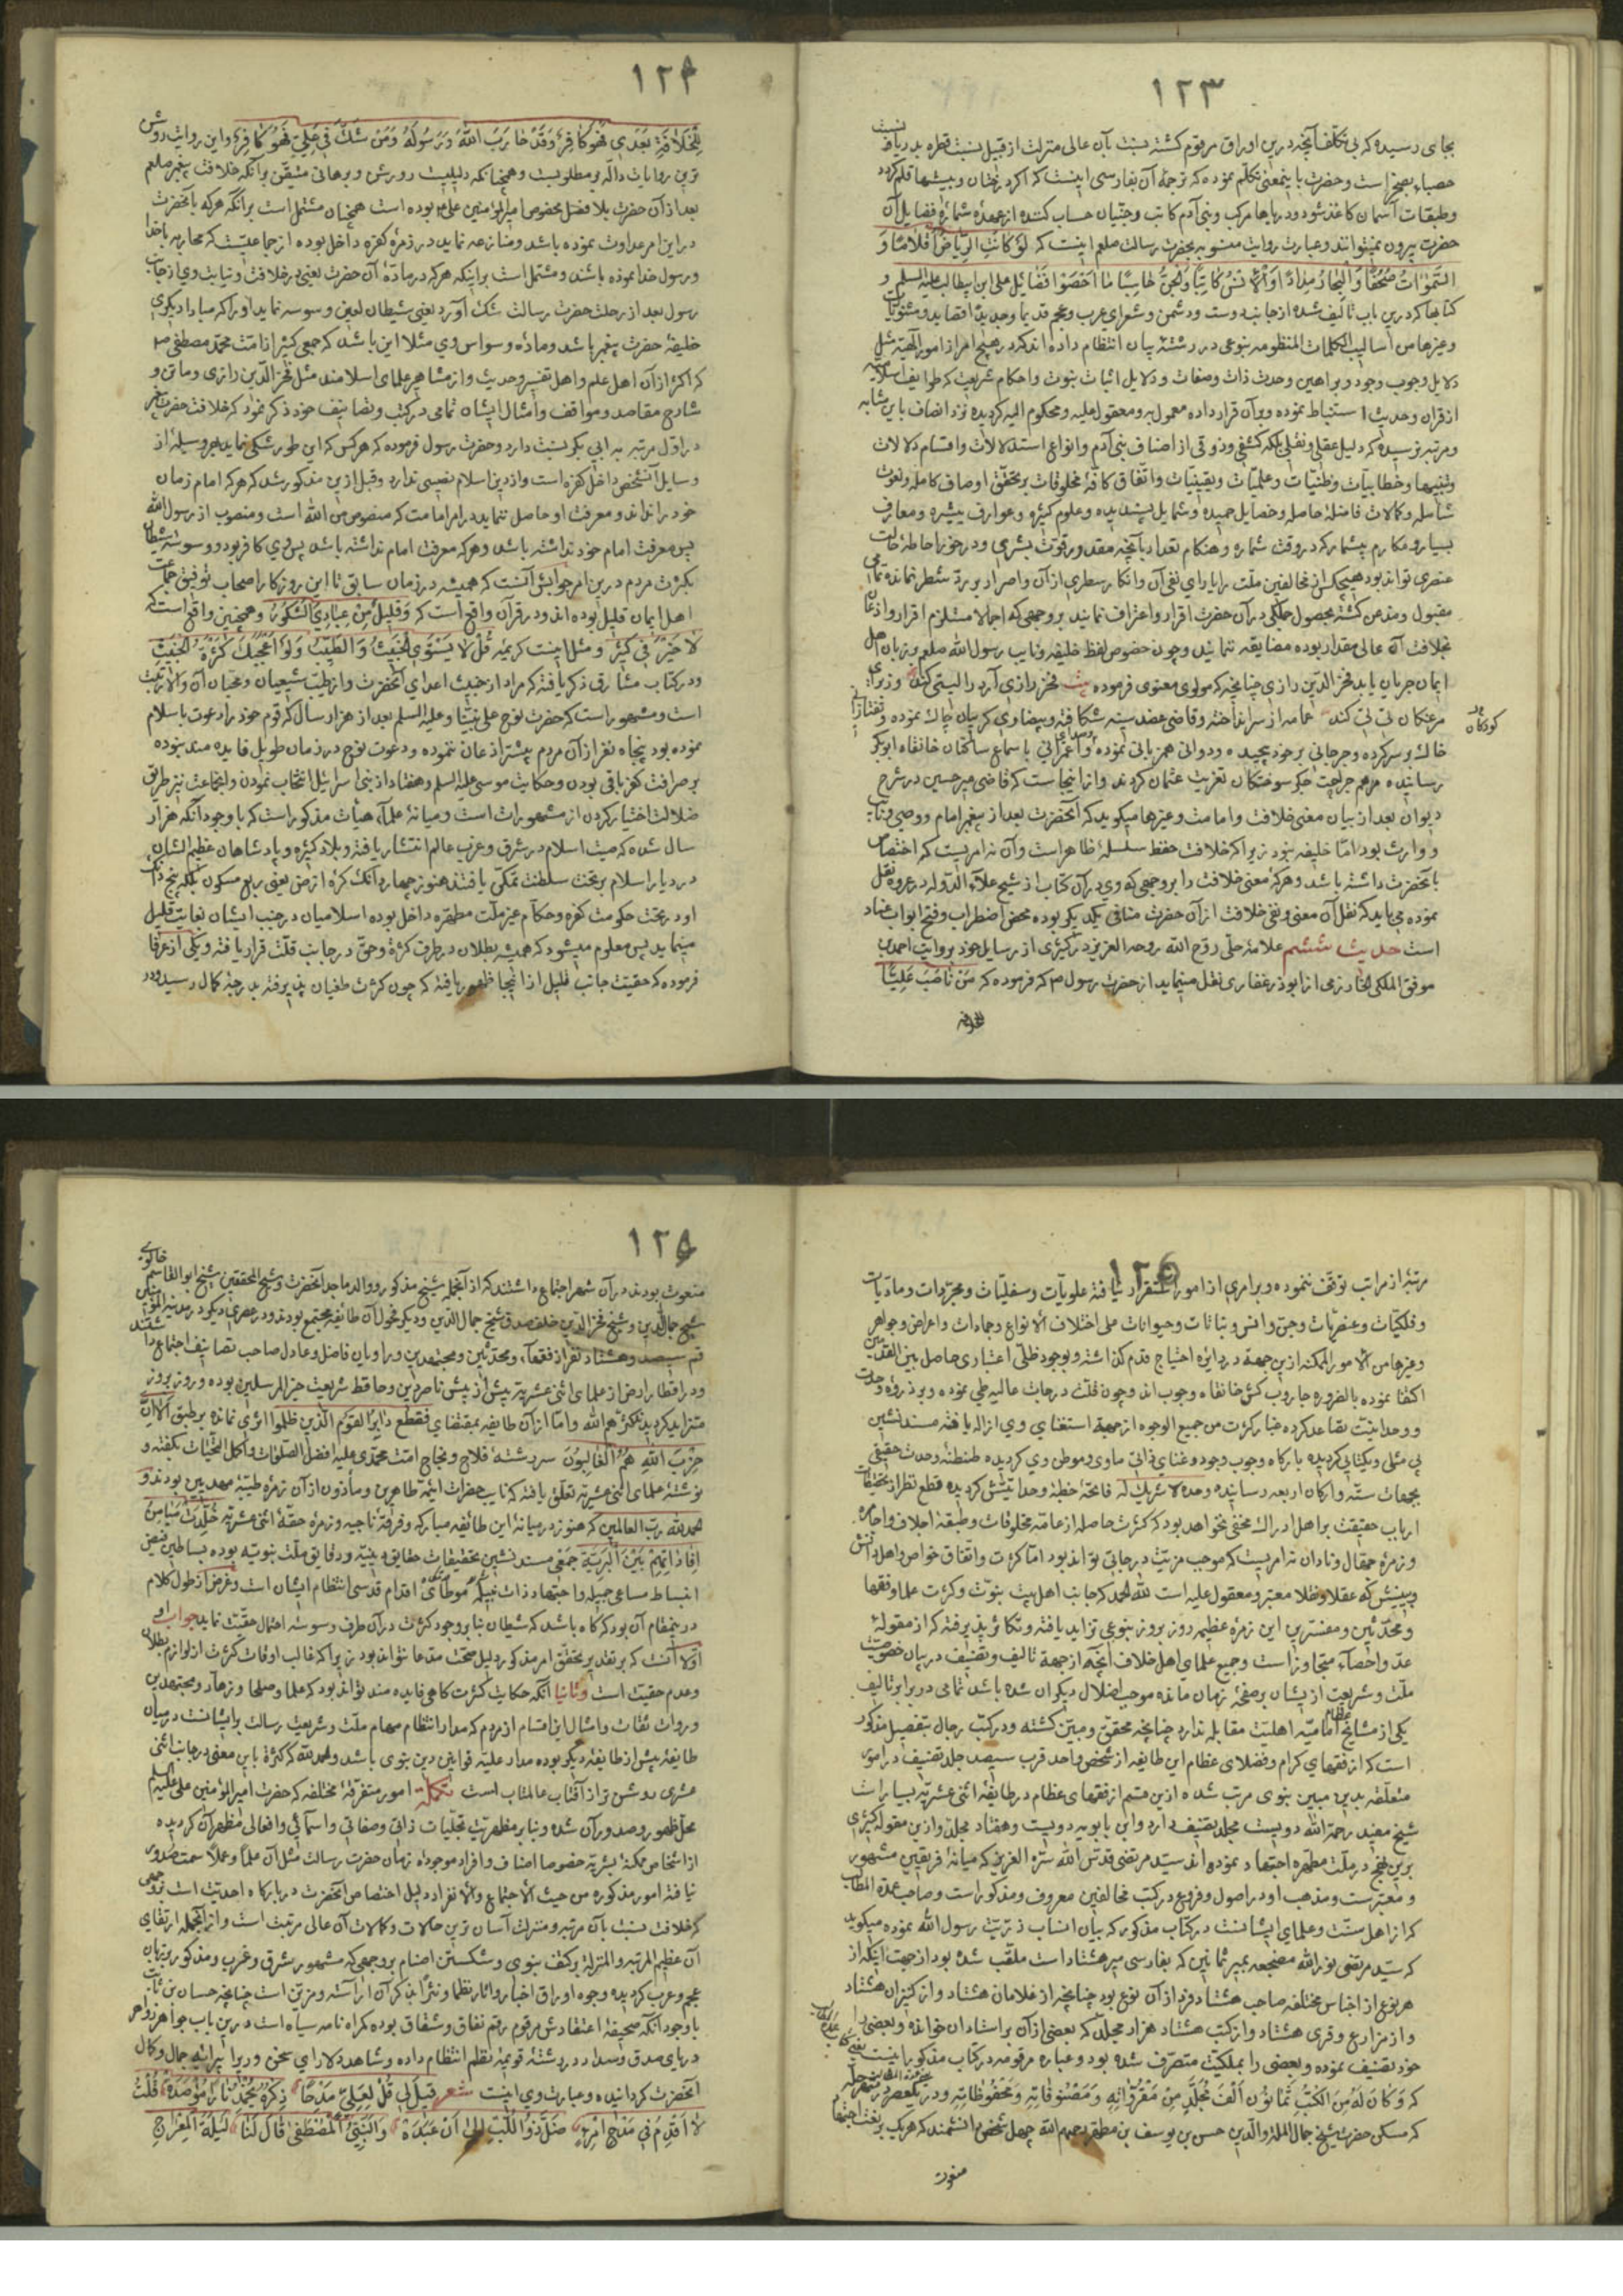 ١٢٣
بجای رسیده که بی تکلف آنچه درین اوراق مرقوم کشته نسبت بآن عالی منزلت از قبیل نسبت قطره بدریا و نسبت
است و حضرت باینمعنی تکلم نموده که ترجمه آن بفارسی اینست که اکر درختان و بیشها قلم کردد
و طبقات آسمان کاغذ شود و دریاها مرکب و بنی آدم کاتب و جنیان حساب کننده از عهده شماره فضایل آن
حضرت بیرون نمیتوانند و عبارت روایت منسوبه بحضرت رسالت صلعم اینست که لَوْ كَانَتِ الرِّيَاضُ اَقْلَامًا وَ
السَّمٰوَاتُ صُحُفًا وَ الْبِحَارُ مِدَادًا وَ الْاِنْسُ كَاتِبًا وَ الْجِنُّ حَاسِبًا مَا اَحْصَوْا فَضَائِلَ علی ابن ابیطالب علیه السلم و
کتابها که درین باب تألیف شده از جانب دوست و دشمن و شعرای عرب و عجم قدیما و حدیثا قصاید و مثنویات
و غیرها من اسالیب الکلمات المنظومه بنوعی در رشته بیان انتظام داده اند که در هیچ امر از امور الهیه مثل
دلایل وجوب وجود و براهین وحدت ذات و صفات و دلایل اثبات نبوت و احکام شریعت که طوایف اسلامیه
از قران و حدیث استنباط نموده و بر آن قرار داده معمول به و معقول علیه و محکوم الیه کردیده نزد انصاف باین مثابه
و مرتبه نرسیده که دلیل عقلی و نقلی بلکه کشفی و ذوقی از اصناف بنی آدم و انواع استدلالات و اقسام دلالات
و تنبیها و خطابیات و ظنیات و علمیات و یقینیات و اتفاق کافه مخلوقات بر تحقق اوصاف کامله و نعوت
شامله و کمالات فاضله حاصله و خصایل حمیده و شمایل پسندیده و علوم کثیره و عوارف بیشره و معارف
بسیار و مکارم بیشمار که در وقت شماره و هنکام تعداد بآنچه مقدور قوت بشری و در خور احاطه حالت
عنصری تواند بود هیچکس از مخالفین ملت را یارای نفی آن و انکار سطری از آن و اصرار بر رد شطر نمانده تمامی
مقبول و مذعن کشته بحصول جملکی در آن حضرت اقرار و اعتراف نمایند بر وجهی که اجمالا مستلزم اقرار و اذعان
بخلافت آن عالی مقدار بوده مضایقه ننمایند و چون خصوص لفظ خلیفه و نایب رسول الله صلعم بر زبان اهل
ایمان جریان یابد فخر الدین رازی چنانچه که مولوی معنوی فرموده بیت فخر رازی آرد را لیتی کند وز برای
مرغکان تی تی کند عمامه از سر انداخته و قاضی عضد سینه شکافته و بیضاوی کریبان چاک نموده و تفتازانی
خاک بر سر کرده و جرجانی بر خود پیچیده و دوانی همزبانی نموده و صدای باسماع ساکنان خانقاه ابوبکر
رسانیده مرهم جراحت جکر سوختکان تعزیت عثمان کردند و از اینجاست که قاضی میر حسین در شرح
دیوان بعد از بیان معنی خلافت و امامت و غیرها میکوید که آنحضرت بعد از پیغمبر امام و وصی و نایب
و وارث بود اما خلیفه نبود زیرا که خلافت حفظ سلسله ظاهر است و آن نه امریست که اختصاص
بآنحضرت داشته باشد و هرکه معنی خلافت را بر وجهی که وی در آن کتاب از شیخ علاء الدوله در عروه نقل
نموده می یابد که نقل آن معنی و نفی خلافت از آن حضرت منافی یکدیکر بوده محض اضطراب و فتح ابواب عناد
است حدیث ششم علامه حلی روح الله روحه العزیز در کثیری از رسایل خود بروایت احمد بن
موفق المکی الخوارزمی از ابوذر غفاری نقل مینماید از حضرت رسول ص که فرموده که مَنْ نَاصَبَ عَلِيًّا
للخلافة
١٢٤
لِلْخِلَافَةِ بَعْدِي فَهُوَ كَافِرٌ وَ قَدْ حَارَبَ اللّٰهَ وَ رَسُولَهُ وَ مَنْ شَكَّ فِي عَلِيٍّ فَهُوَ كَافِرٌ و این روایت روشن
ترین روایات داله بر مطلوبست و همچنانکه دلیلیست روشن و برهانی متیقن بر آنکه خلافت پیغمبر صلعم
بعد از آن حضرت بلا فصل مخصوص امیر المؤمنین علی ع بوده است همچنان مشتمل است بر آنکه هر که بآنحضرت
در این امر عداوت نموده باشد و منازعه نماید در زمره کفره داخل بوده از جماعتیست که محاربه با خدا
و رسول خدا نموده باشند و مشتمل است بر اینکه هر که در ماده آن حضرت یعنی در خلافت و نیابت وی از جانب
رسول بعد از رحلت حضرت رسالت شک آورد یعنی شیطان لعین وسوسه نماید او را که مبادا دیکری
خلیفه حضرت پیغمبر باشد و ماده وسواس وی مثلا این باشد که جمعی کثیر از امت محمد مصطفی ص
که اکثر از آن اهل علم و اهل تفسیر و حدیث و از مشاهیر علمای اسلامند مثل فخر الدین رازی و ماتن و
شارح مقاصد و مواقف و امثال ایشان تمامی در کتب و تصانیف خود ذکر نموده که خلافت حضرت پیغمبر
در اول مرتبه به ابی بکر نسبت دارد و حضرت رسول فرموده که هر کس که این طور شکی نماید بهر وسیله از
وسایل آنشخص داخل کفره است و از دین اسلام نصیبی ندارد و قبل ازین مذکور شد که هر که امام زمان
خود را نداند و معرفت او حاصل ننماید در امر امامت که منصوص من الله است و منصوب از رسول الله
پس معرفت امام خود نداشته باشد و هر که معرفت امام نداشته باشد پس وی کافر بود و وسوسه شیطان
بکثرت مردم درین امر جوابش آنست که همیشه در زمان سابق تا این روزکار اصحاب توفیق و جماعت
اهل ایمان قلیل بوده اند و در قرآن واقع است که وَ قَلِيلٌ مِنْ عِبَادِيَ الشَّكُورُ و همچنین واقع است که
لَا خَيْرَ فِي كَثِيرٍ و مثل اینست کریمه قُلْ لَا يَسْتَوِي الْخَبِيثُ وَ الطَّيِّبُ وَ لَوْ اَعْجَبَكَ كَثْرَةُ الْخَبِيثِ
و در کتاب مشارق ذکر یافته که مراد از خبیث اعدای آنحضرت و از طیب شیعیان و محبان آن والا رتبت
است و مشهور است که حضرت نوح علی نبینا و علیه السلم بعد از هزار سال که قوم خود را دعوت باسلام
نموده بود پنجاه نفر از آن مردم بیشتر اذعان ننموده و دعوت نوح در زمان طویل فایده مند نبوده
بر صرافت کفر باقی بودن و حکایت موسی علیه السلم و هفتاد از بنی اسرائیل انتخاب نمودن و آنجماعت نیز طریق
ضلالت اختیار کردن از مشهورات است و میانه علماء هیأت مذکور است که با وجود آنکه هزار
سال شده که صیت اسلام در شرق و غرب عالم انتشار یافته و بلاد کثیره و پادشاهان عظیم الشان
در دیار اسلام بر تخت سلطنت تمکن یافتند هنوز چهار دانک کره ارض یعنی ربع مسکون بلکه پنج دانک
او در تحت حکومت کفره و حکام غیر ملت مطهره داخل بوده اسلامیان در جنب ایشان بغایت قلیل
مینماید پس معلوم میشود که همیشه بطلان در طرف کثرة و حق در جانب قلت قرار یافته و یکی از عرفا
فرموده که حقیت جانب قلیل از اینجا ظهور یافته که چون کثرت طغیان پذیرفته بدرجه کمال رسید و در
١٢٥
مرتبهٔ از مراتب توقف ننموده و بر امری از امور استقرار نیافته علویات و سفلیات و مجردات و مادیات
و فلکیات و عنصریات و جن و انس و نباتات و حیوانات علی اختلاف الانواع و جمادات و اعراض و جواهر
و غیرها من الامور الممکنه ازین جهة در دایره احتیاج قدم کذاشته و بوجود ظلی اعتباری حاصل بین العدمین
اکتفا نموده بالضروره جاروب کش خانقاه وجوب اند و چون قلت درجات عالیه طی نموده و بر ذروه وحدت
و وحدانیت تصاعد کرده غبار کثرت من جمیع الوجوه از جهة استغنای وی ازاله یافته مسند نشین
بی مثلی و یکتایی کردیده بارکاه وجوب وجود و غنای ذاتی ماوی و موطن وی کردیده طنطنه وحدت حقیقی
بجهات سته و ارکان اربعه رسانیده وحده لا شریک له فاتحه خطبه وحدانیتش کردیده قطع نظر از تحقیقات
ارباب حقیقت بر اهل ادراک مخفی نخواهد بود که کثرت حاصله از عامه مخلوقات و طبقه اجلاف و اجامره
و زمره جهال و نادان نه امریست که موجب مزیت درجاتی تواند بود اما کثرت و اتفاق خواص و اهل دانش
و بینش که عقلا و نقلا معتبر و معقول علیه است لله الحمد که جانب اهل بیت نبوت و کثرت علما و فقها
و محدثین و مفسرین این زمره عظیمه روز بروز بنوعی تزاید یافته و تکاثر پذیرفته که از مقوله
عد و احصاء متجاوز است و جمیع علمای اهل خلاف آنچه از جهة تالیف و تصنیف در بیان خصوصیت
ملت و شریعت از یشان بر صفحه زمان مانده موجب اضلال دیکران شده باشد تمامی در برابر تالیف
یکی از مشایخ عظام امامیه اهلیت مقابله ندارد چنانچه محقق و مبین کشته و در کتب رجال بتفصیل مذکور
است که از فقهای کرام و فضلای عظام این طایفه از شخص واحد قرب سیصد جلد تصنیف در امور
متعلقه بدین مبین نبوی مرتب شده ازین قسم از فقهای عظام در طایفه اثنی عشریه بسیار است
شیخ مفید رحمة الله دویست مجلد تصنیف دارد و ابن بابویه دویست و هفتاد مجلد و ازین مقوله کثیری
برین نهج در ملت مطهره اجتهاد نموده اند سید مرتضی قدس الله سره العزیز که میانه فریقین مشهور
و معتبرست و مذهب او در اصول و فروع در کتب مخالفین معروف و مذکور است و صاحب عمدة المطالب
که از اهل سنت و علمای ایشانست در کتاب مذکور که بیان انساب ذریت رسول الله نموده میکوید
که سید مرتضی نور الله مضجعه بمیر ثمانین که بفارسی میر هشتاد است ملقب شده بود از جهت اینکه از
هر نوع از اجناس مختلفه صاحب هشتاد فرد از آن نوع بود چنانچه از غلامان هشتاد و از کنیزان هشتاد
و از مزارع و قری هشتاد و از کتب هشتاد هزار مجلد که بعضی از آن بر استادان خوانده و بعضی را
خود تصنیف نموده و بعضی را بملکیت متصرف شده بود و عباره مرقومه در کتاب مذکور اینست
که وَ كَانَ لَهُ مِنَ الْكُتُبِ ثَمَانُونَ اَلْفَ مُجَلَّدٍ مِنْ مَقْرُوَّاتِهِ وَ مَصْنُوفَاتِهِ وَ مَحْفُوظَاتِهِ و در یکعصر در شهر حله
که مسکن حضرت شیخ جمال الملة و الدین حسن بن یوسف بن مطهر رحمهم الله چهل شخص دانشمند که هریک
منعوت
١٢٥
منعوت بودند در آن شهر اجتماع داشتند که از آنجمله شیخ مذکور و والد ماجد آنحضرت و شیخ المحققین شیخ ابو القاسم
شیخ جمال الدین و شیخ فخر الدین خلف صدق شیخ جمال الدین و دیکر فحول آن طایفه مجتمع بودند و در عصری دیکر
قم سیصد و هشتاد نفر از فقهاء و محدثین و مجتهدین و راویان فاضل و عادل صاحب تصانیف اجتماع داشتند
و در اقطار ارض از علمای اثنی عشریه بیش از پیش ناصر دین و حافظ شریعت خیر المرسلین بوده و روز بروز
متزاید کردیده کثرهم الله و اما از آن طایفه بمقتضای فَقُطِعَ دَابِرُ الْقَوْمِ الَّذِينَ ظَلَمُوا اثری نمانده بر طبق اَلَا اِنَّ
حِزْبَ اللّٰهِ هُمُ الْغَالِبُونَ سر رشته فلاح و نجاح امت محمدی علیه افضل الصلوات و اکمل التحیات بکفته و
نوشته علمای اثنی عشریه تعلق یافته که نایب حضرات ایمه طاهرین و مأذون از آن زمره طیبه مهدیین بودند و
الحمد لله رب العالمین که هنوز در میانه این طائفه مبارکه و فرقه ناجیه و زمره حقه اثنی عشریه خُلِّدَتْ مَيَامِنُ
اِفَادَاتِهِمْ بَيْنَ الْبَرِيَّةِ جمعی مسند نشین تحقیقات حقایق دینیه و دقایق ملت نبویه بوده بساطین فیض
انبساط مساعی جمیله و اجتهاد ذات نبیله موطای اقدام قدسی انتظام ایشان است و غرض از طول کلام
در ینمقام آن بود که کاه باشد که شیطان بنابر وجود کثرت در آن طرف وسوسه احتمال حقیت نماید جواب او
اولا آنست که بر تقدیر تحقق امر مذکور دلیل صحت مدعا نتواند بود زیرا که غالب اوقات کثرت از لوازم بطلان
و عدم حقیت است و ثانیا آنکه حکایت کثرت کاهی فایده مند تواند بود که علما و صلحا و زهاد و مجتهدین
و روات ثقات و امثال این اقسام از مردم که مدار انتظام مهام ملت و شریعت رسالت بر ایشانست در میان
طایفهٔ بیش از طایفهٔ دیکر بوده مدار علیه قوانین دین نبوی باشد و الحمد لله که کثرة باین معنی در جانب اثنی
عشری روشن تر از آفتاب عالمتاب است تکمله امور متفرقهٔ مختلفه که حضرت امیر المؤمنین علی علیه السلم
محل ظهور و صدور آن شده و بنابر مظهریت تجلیات ذاتی و صفاتی و اسمائی و افعالی مظهر آن کردیده
از اشخاص ممکنهٔ بشریه خصوصا اصناف و افراد موجوده زمان حضرت رسالت مثل آن علما و عملا سمت صدور
نیافته امور مذکوره من حیث الاجتماع و الانفراد دلیل اختصاص آنحضرت در بارکاه احدیت است بر وجهی
که خلافت نسبت بآن مرتبه و منزلت آسان ترین حالات و کمالات آن عالی مرتبت است و از آنجمله ارتقای
آن عظیم المرتبه و المنزلة بر کتف نبوی و شکستن اصنام بر وجهی که مشهور شرق و غرب و مذکور بزبان
عجم و عرب کردیده وجوه اوراق اخبار و اثار نظما و نثرا بذکر آن اراسته و مزین است چنانچه حسان بن ثابت
با وجود آنکه صحیفهٔ اعتقادش مرقوم رقم نفاق و شقاق بوده کمراه نامه سیاه است درین باب جواهر زواهر
دریای صدق و سداد در رشتهٔ قویمهٔ نظم انتظام داده و شاهد دلارای سخن وریرا پیرایه جمال و کمال
آنحضرت کردانیده و عبارت وی اینست شعر قِيلَ لِي قُلْ لِعَلِيٍّ مَدْحًا ذِكْرُهُ يُخْمِدُ نَارًا مُؤْصَدَةْ قُلْتُ
لَا اَقْدِمُ فِي مَدْحِ امْرِءٍ ضَلَّ ذُو اللُّبِّ اِلَى اَنْ عَبَدَهْ وَ النَّبِيُّ الْمُصْطَفَى قَالَ لَنَا لَيْلَةَ الْمِعْرَاجِ